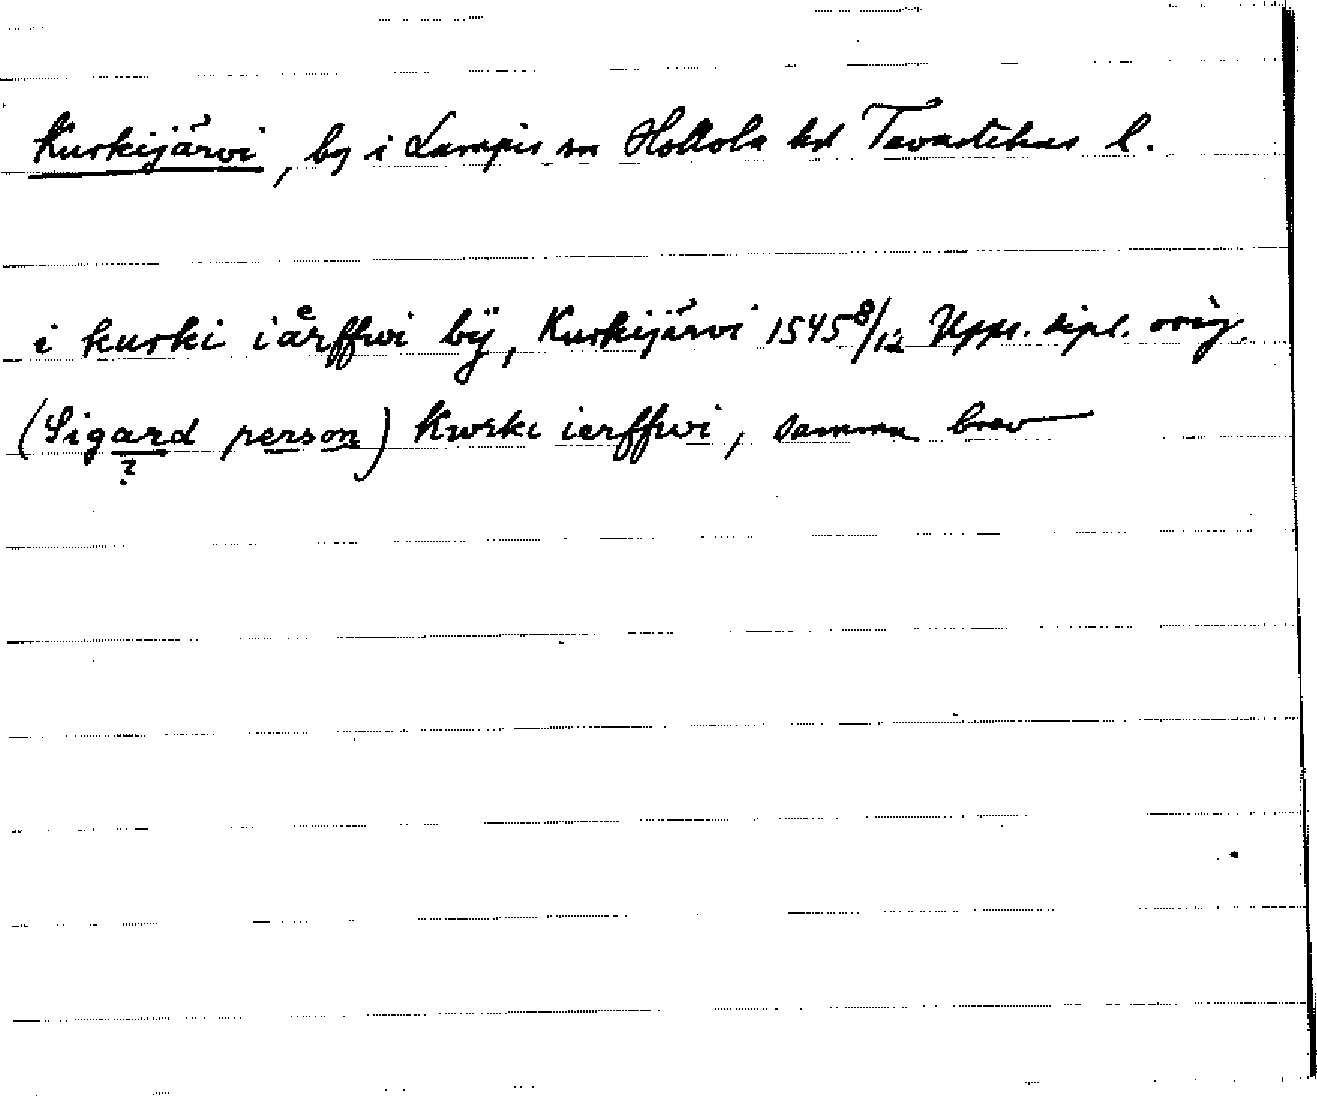 Kurkijärvi, by i Lampis sn Hollola hd Tavastehus l.
i kurki iaͤrffwi bÿ, Kurkijärvi 1545 8/12 Upps. dipl. orig.
(Sigard person) Kwrki ierffwi, samma brev
?